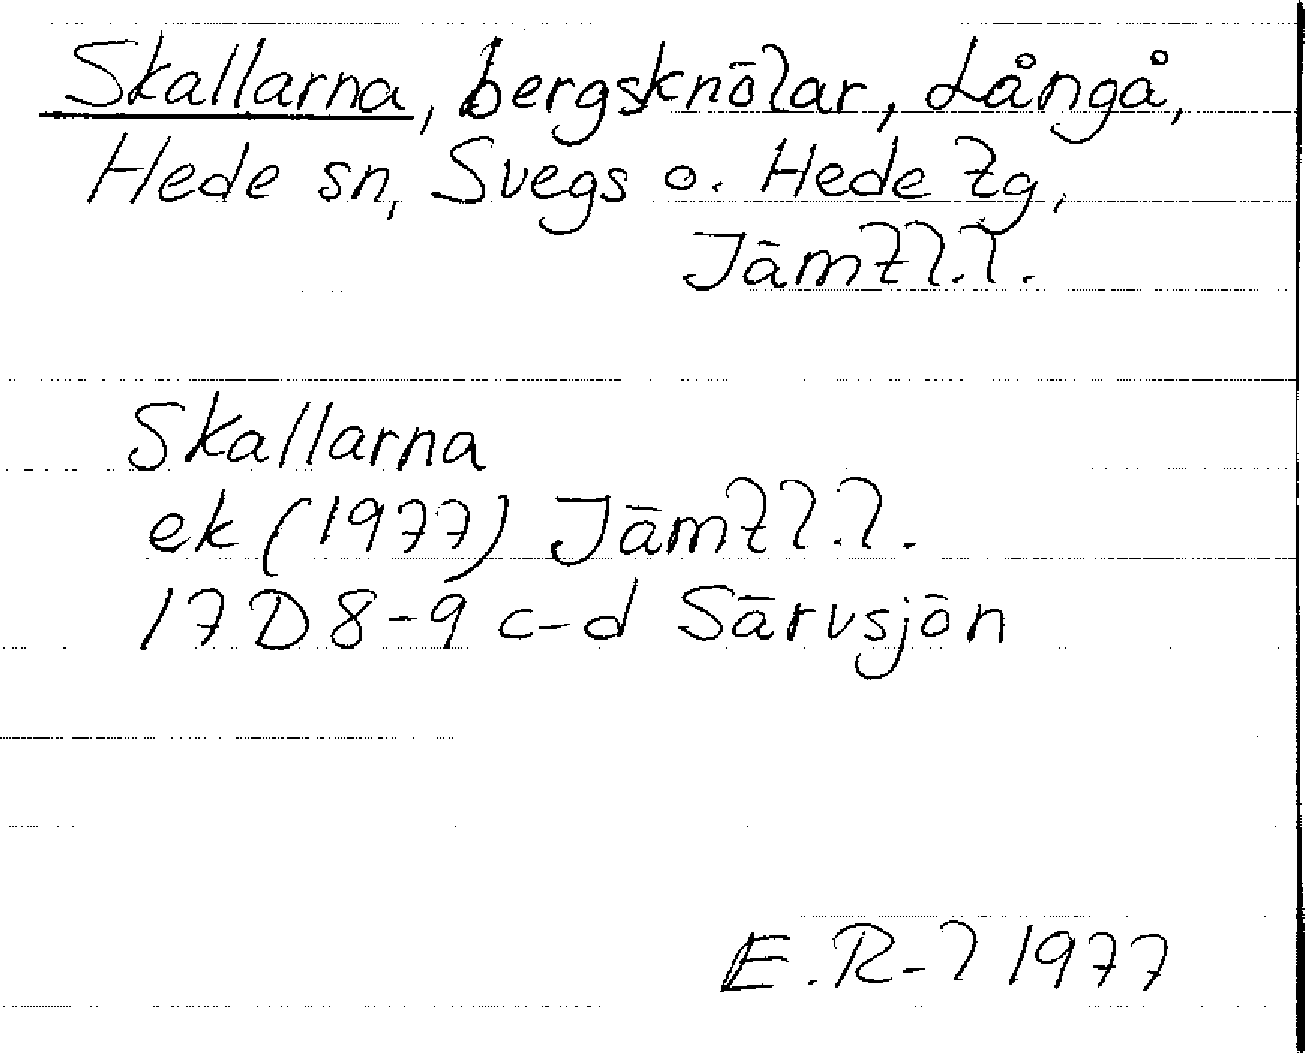 Skallarna, bergsknölar, Långå,
Hede sn, Svegs o. Hede tg,
Jämtl.l.
Skallarna
ek (1977) Jämtl.l.
17D 8-9 c-d Särvsjön
E.R-l 1977